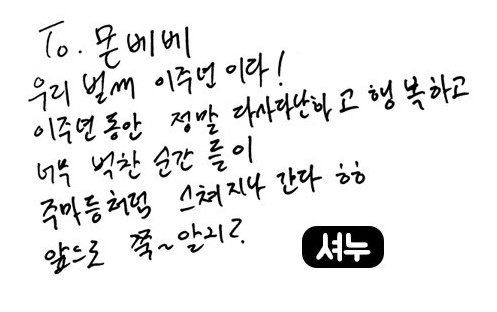 To. 몬베베
우리 벌써 이주년이다!
이주년동안 정말 다사다난하고 행복하고
너무 벅찬 순간들이
주마등처럼 스쳐지나간다 ㅎㅎ
앞으로 쭉~알지?
셔누